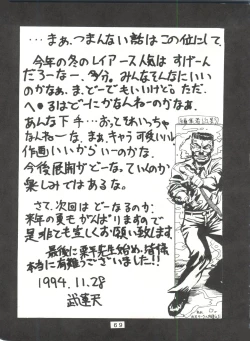 …まぁ、つまんない話はこの位にして、
今年の冬のレイアース人気は すげーん
だろーなー、多分。みんなそんなにいい
のかなぁ。ま、どーでもいいけど。ただ、
へ●るはどーにかなんねーのかなぁ。
あんな下手…おっともれいっちゃ
なんねーな。まぁ、キャラ可愛いし
作画いいからいーのかな。
今後展開がどーなっていくのか
楽しみではあるな。
さて、次回はどーなるのか、
来年の夏もがんばりますので
是非とも宜しくお願い致します
最後に 先生始め、皆様
本当に有難うございました!!
1994.11.28
武蓮天
69